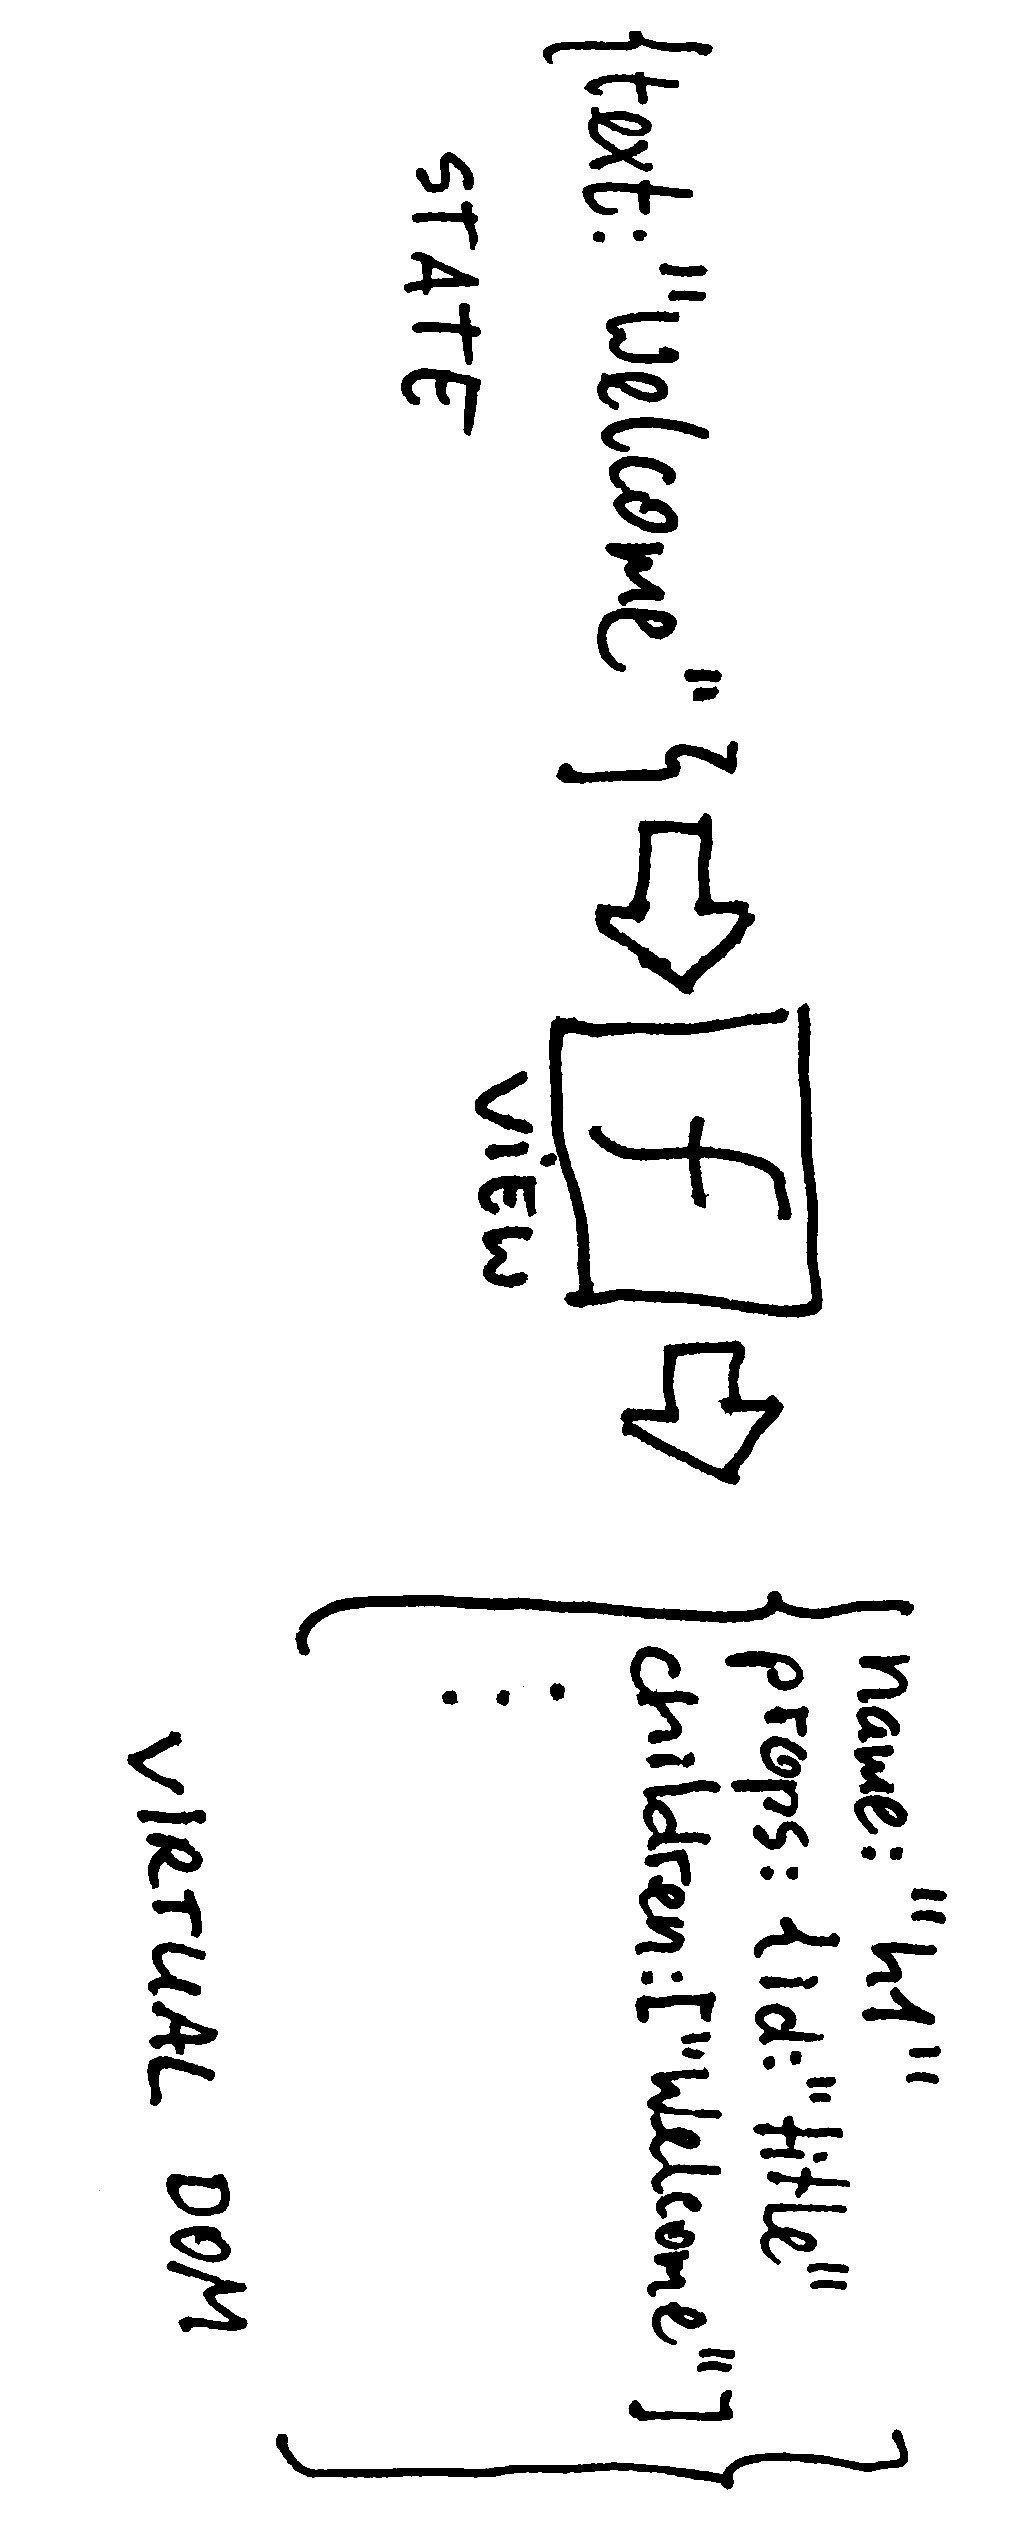 {text: "Welcome"}
STATE
f
VIEW
{name: "h1"
props: {id: "title"
children: ["Welcome"]
...
}
VIRTUAL DOM